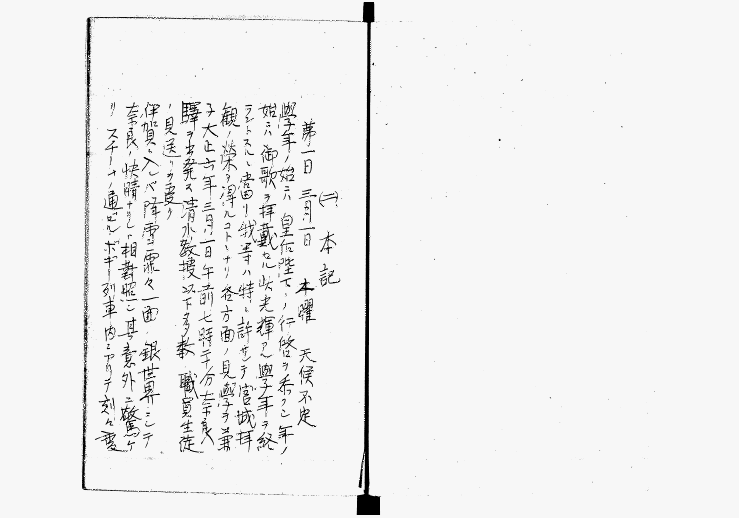 (二) 本記
第一日 三月一日 木曜 天候不定
學年ノ始ニハ 皇后陛下ノ行啓ヲ忝クシ年ノ
始ニハ御歌ヲ拝戴セル光輝アル學年ヲ終
ラントスルニ當リ我等ハ特ニ許サレテ宮城拝
観ノ榮ヲ得ルコトトナリ各方面ノ見學ヲ兼
子大正六年三月一日午前七時三十分奈良
驛ヲ出発ス清水教授以下多数職員生徒
ノ見送リヲ受ク
伊賀ニ入レバ降雪霏々一面銀世界ニシテ
奈良ノ快晴ナリシト相對照シ其意外ニ驚ケ
リ スチームノ通ゼルボギー列車内ニアリテ刻々変